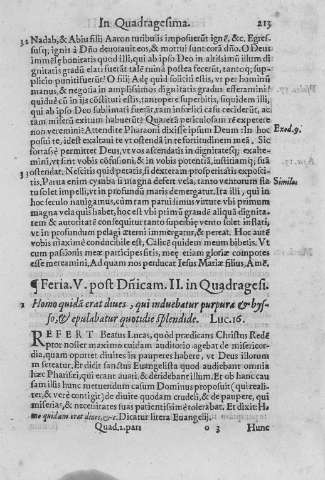 In Quadragesima. 213
32 Nadab, & Abiu filij Aaron turibulis imposuerūt ignē, &c. Egres-
susq; ignis à Dño deuorauit eos, & mortui sunt corā dño. O Deus
immēse honitatis quod illi, qui ab ipso Deo in altissimū illum di
gnitatis gradū elati fuerāt talē ruinā postea fecerūt, tantoq; sup-
plicio puniti fuerūt! O filij Adę quid soliciti estis, vt per homini
manus, & negotia in amplissimos dignitatis gradus efferamini:
quidué cū in ijs constituti estis, tanopere superbitis, siquidem illi,
qui ab ipso Deo sublimati fuerāt, tam infœlici casu ceciderūt, ac
tam miserū exitum habuerūt? Quætā periculosam rē expetere
non veremini: Attendite Pharaoni dixisse ipsum Deum: In hoc Exod.9.
posui te, idest exaltaui te vt ostendā in te fortitudinem meā. Sic
fortasse permittet Deus, vt vos ascendatis in dignitatesq; exalte-
mini, vt sint vobis cōfusioni, & in vobis potentiā, iustitiamq; suā
33 ostendat. Nescitis quid petatis, si dexteram prosperitatis exposci-
tis. Parua enim cymba si magna defert vela, tanto ventorum flā Similis
tu solet impelli, vt in profundū maris demergatur. Ita illi, qui in
hoc seculo nauigamus, cùm ram paruissimus virtute vbi primum
magna vela quis habet, hoc est vbi primū grande aliquā dignita-
tem & autoritatē consequitur tanto superbię vento solet inflari,
vt in profundum pelagi æterni immergatur, & pereat. Hoc autē
vobis maximè conducibile est, Calicē quidem meum bibetis. Vt
cum passionis meæ participes sitis, meę etiam glorię compotes
esse mereamini. Ad quam nos perducat Iesus Mariæ filius, Amē.
¶Feria.V. post Dñicam. II. in Quadragesi.
1 Homo quidā erat diues, qui induebatur purpura & bys-
so, & epulabatur quotidie splendide. Luc.16.
REFERT Beatus Lucas, quòd prædicans Christus Redē
ptor noster maximo cuidam auditorio agebat de misericor-
dia, quam oportet diuites in pauperes habere, vt Deus illorum
misereatur, Et dicit sanctus Euangelista quod audiebant omnia
hæc Pharisæi, qui erant auari, & deridebant illum. Et ob hanc cau
sam illis hunc metuendum casum Dominus proposuit (qui reali-
ter, & verè contigit) de diuite quodam crudeli, & de paupere, qui
miserias, & necessitates suas patientissimè tolerabat. Et dixit: Ho
mo quidam erat diues, &c. Dicatur litera Euangelij.
Quad.2.pars o 3 Hunc